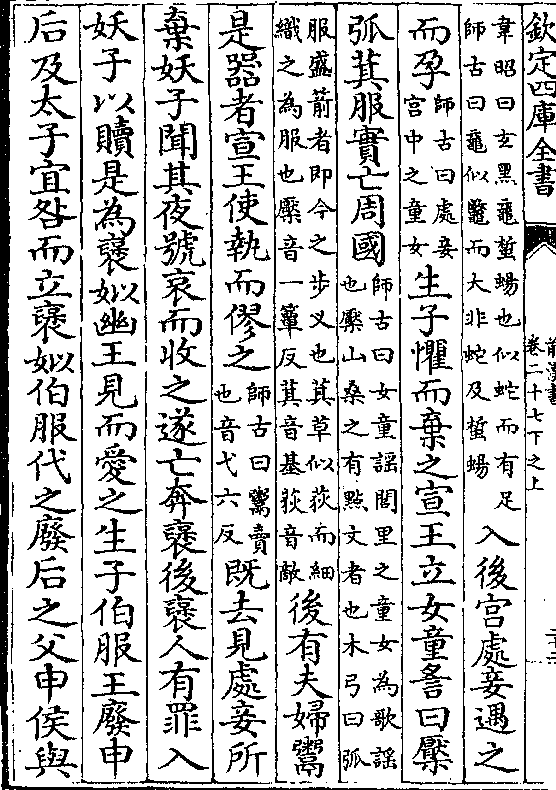 欽定四庫全書
卷二十七下之上
韋昭曰玄黑黿蜤蜴也似蛇而有足
師古曰黿似鼈而大非蛇及蜤蜴
入後宮處妾遇之
而孕
師古曰處妾
宮中之童女
生子懼而棄之宣王立女童謡曰檿
弧萁服實亡周國
師古曰女童謡閭里之童女為歌謡
也檿山桑之有㸃文者也木弓曰弧
服盛箭者即今之步叉也萁草似荻而細
織之為服也檿音一簟反萁音基荻音敵
後有夫婦鬻
是器者宣王使執而僇之
師古曰鬻賣
也音弋六反
既去見處妾所
棄妖子聞其夜號哀而收之遂亡奔襃後襃人有罪入
妖子以贖是為襃姒幽王見而愛之生子伯服王廢申
后及太子宜咎而立襃姒伯服代之廢后之父申侯與